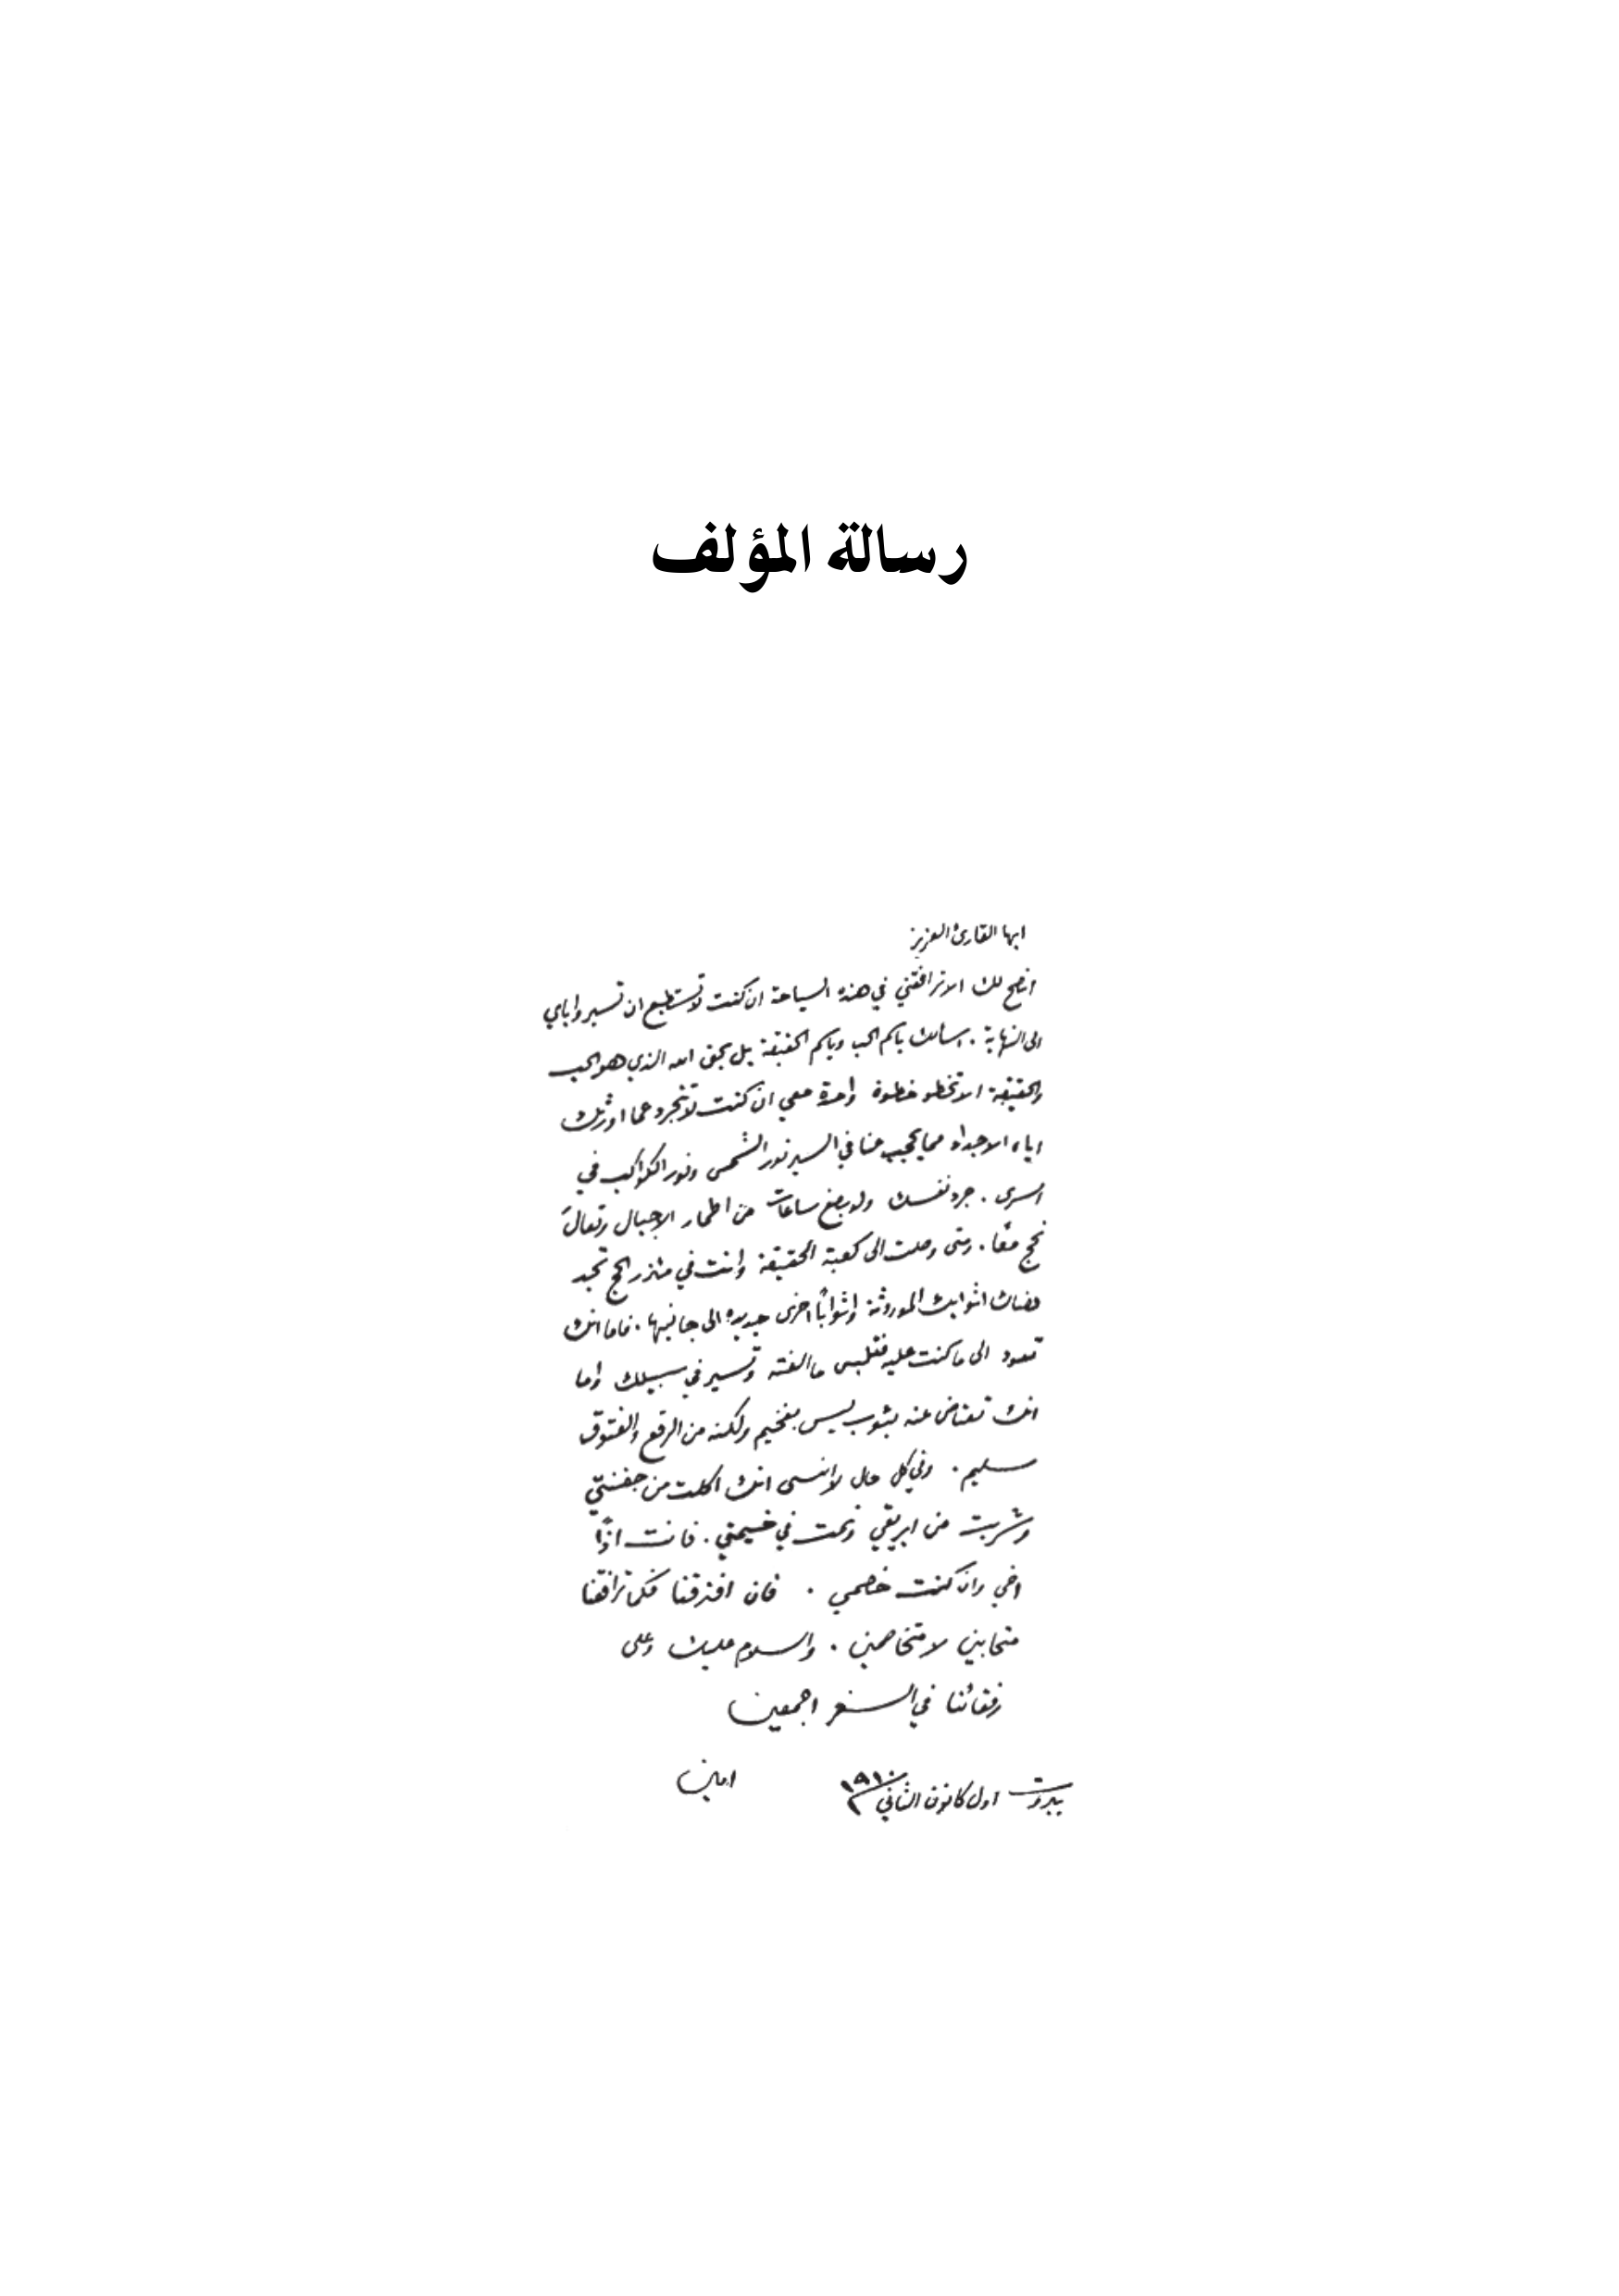 رسالة المؤلف
ايها القارئ العزيز
انصح لك الا ترافقني في هذه السياحة ان كنت لا تستطيع ان تسير واياي
الى النهاية. اسألك باسم الحب وباسم الحقيقة بل بحق الله الذي هو الحب
والحقيقة الا تخطو خطوة واحدة معي ان كنت لا تتجرد عما اورثك
اياه الاجداد مما يحجب عنا في السير نور الشمس ونور الكواكب في
السرى. جرد نفسك ولو بضع ساعات من اطمار الاجيال وتعالَ
نحج معًا. ومتى وصلت الى كعبة الحقيقة وانت في مئزر الحج تجد
هناك اثوابك الموروثة واثوابًا اخرى جديدة الى جانبها. فاما انك
تعود الى ما كنت عليه فتلبس ما الفته وتسير في سبيلك واما
انك تعتاض عنه بثوب ليس بفخيم ولكنه من الرقع والفتوق
سليم. وفي كل حال لا تنسى انك اكلت من جفنتي
وشربت من ابريقي ونمت في خيمتي. فانت اذًا
اخي وان كنت خصمي. فان افترقنا فكما ترافقنا
متحابين لا متخاصمين. والسلام عليك وعلى
رفقائنا في السفر اجمعين
بيروت اول كانون الثاني ١٩١٠ امين